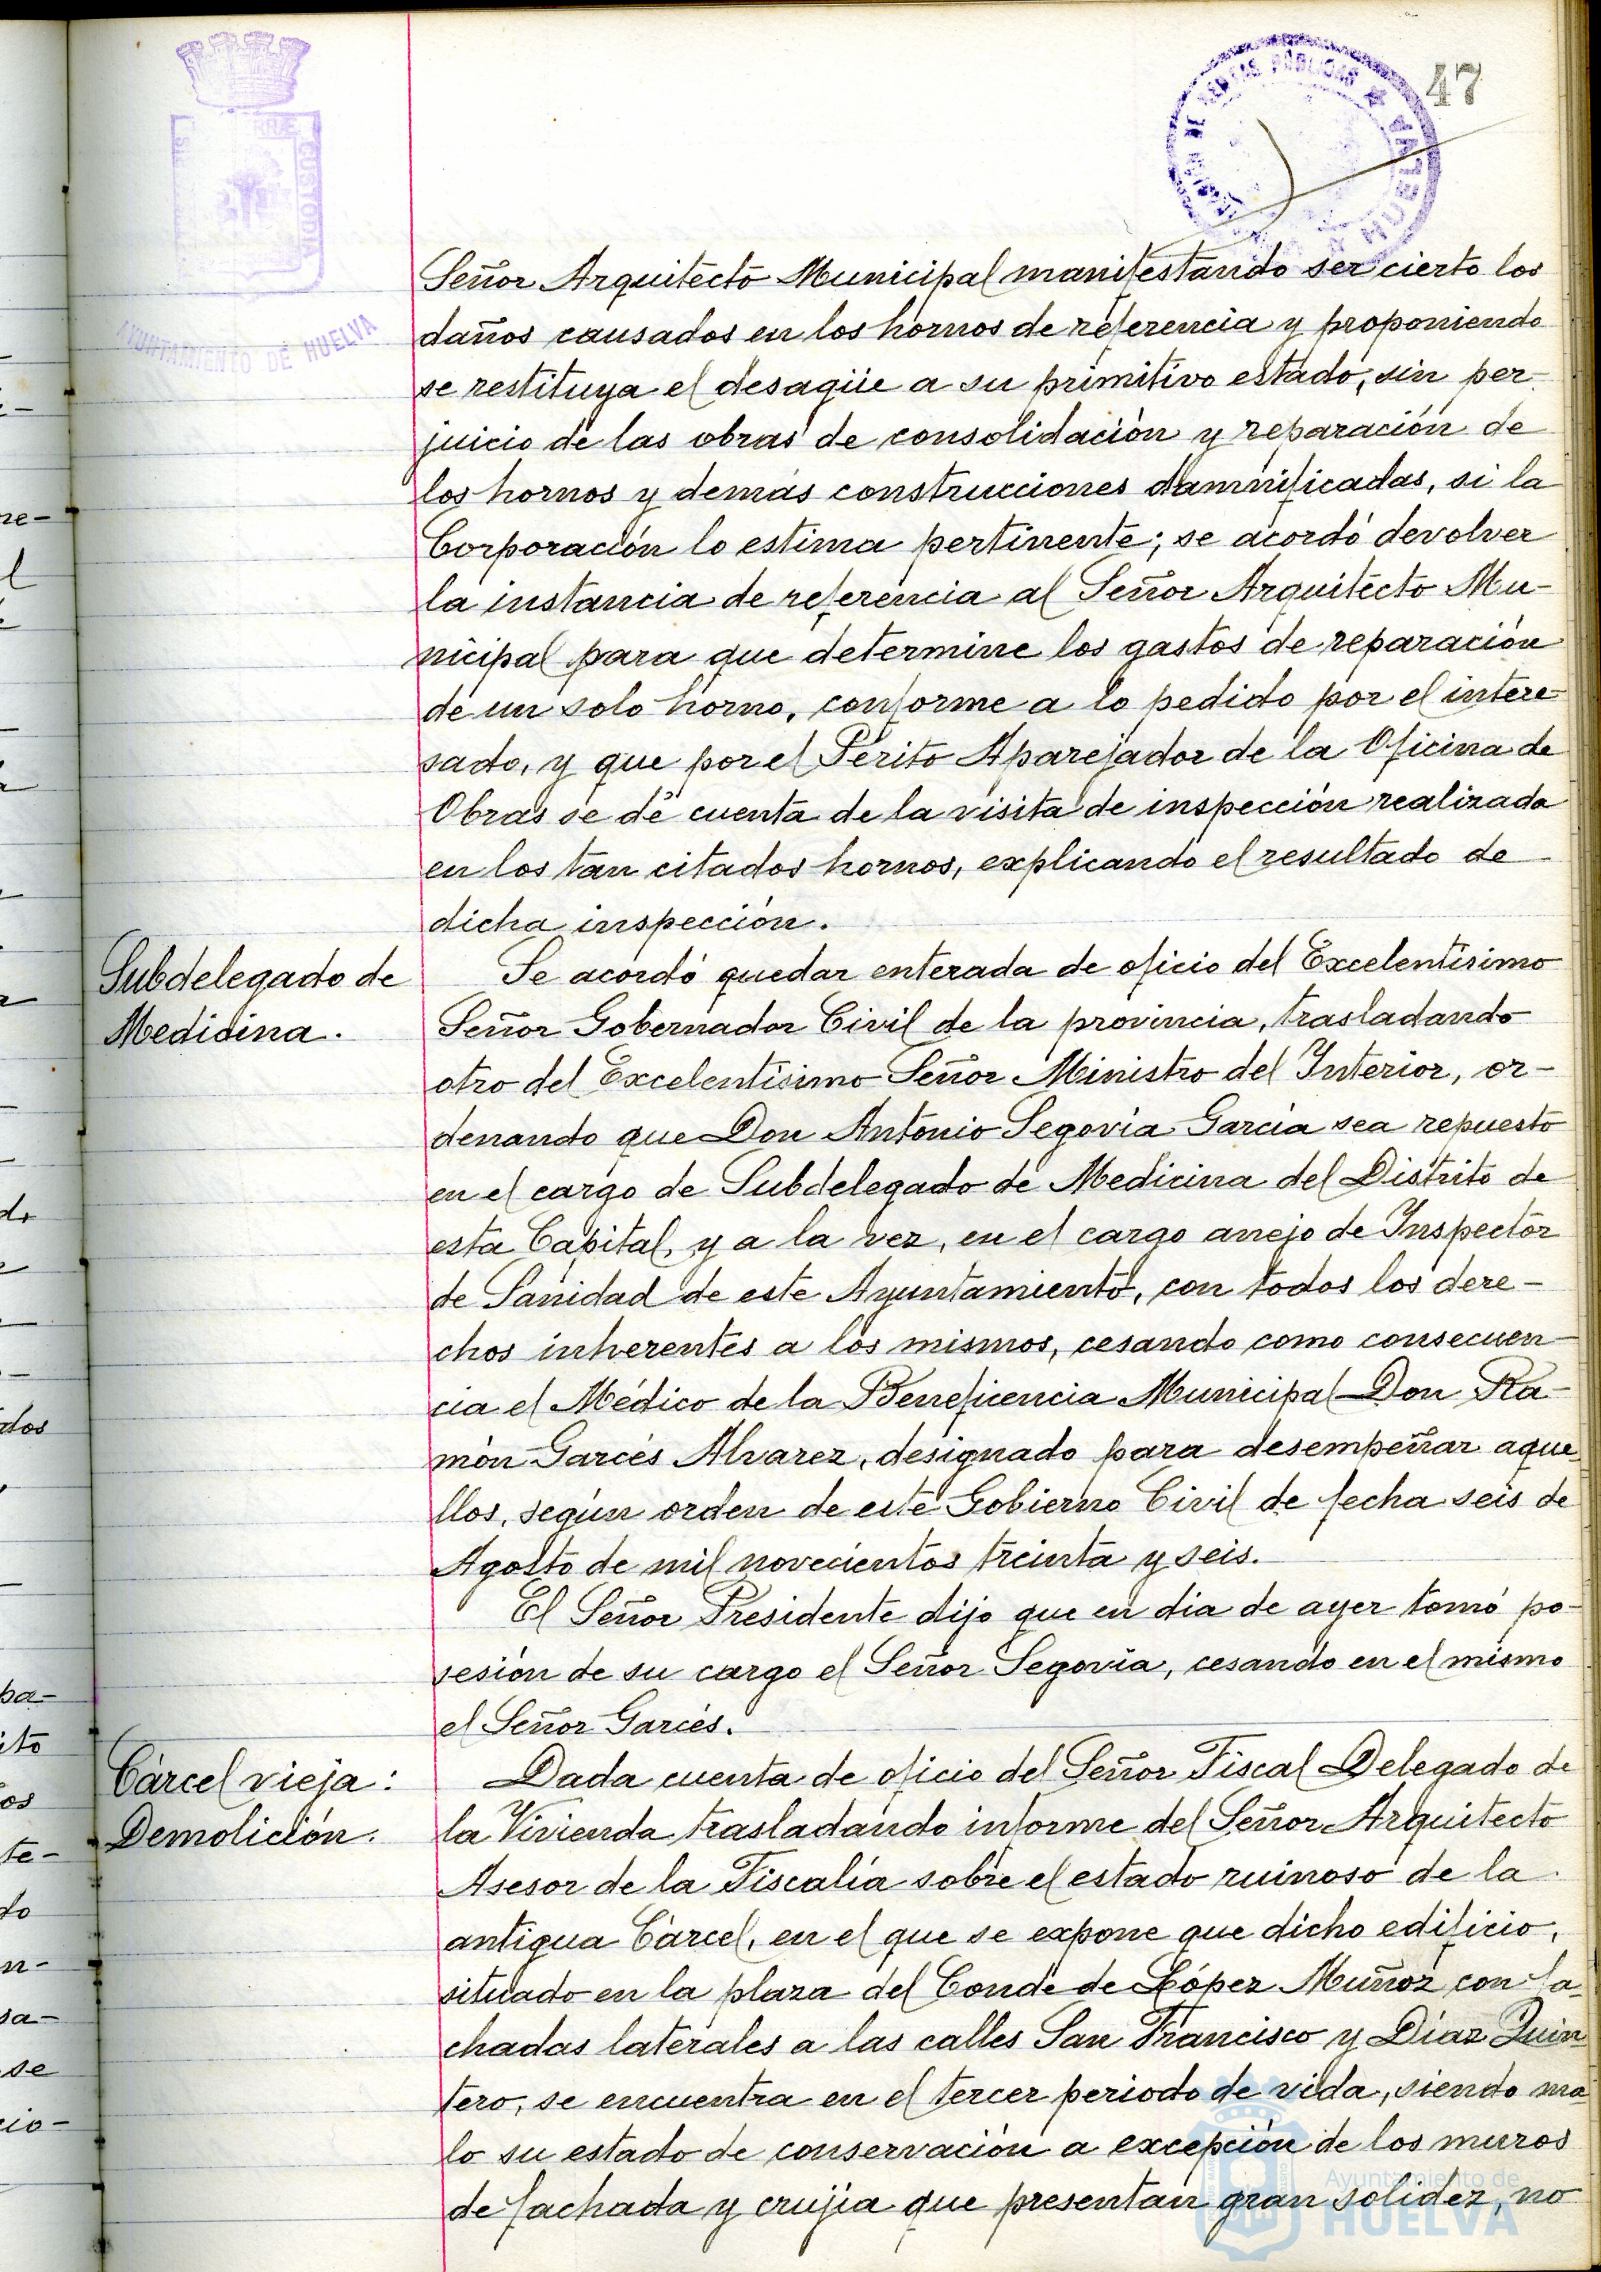 47
AYUNTAMIENTO DE HUELVA
CUSTODIA
HUELVA
Señor Arquitecto Municipal manifestando ser cierto los
daños causados en los hornos de referencia y proponiendo
se restituya el desagüe a su primitivo estado, sin per-
juicio de las obras de consolidación y reparación de
los hornos y demás construcciones damnificadas, si la
Corporación lo estima pertinente; se acordó devolver
la instancia de referencia al Señor Arquitecto Mu-
nicipal para que determine los gastos de reparación
de un solo horno, conforme a lo pedido por el intere-
sado, y que por el Perito Aparejador de la Oficina de
Obras se dé cuenta de la visita de inspección realizada
en los tan citados hornos, explicando el resultado de
dicha inspección.
Subdelegado de
Medicina.
Se acordó quedar enterada de oficio del Excelentísimo
Señor Gobernador Civil de la provincia, trasladando
otro del Excelentísimo Señor Ministro del Interior, or-
denando que Don Antonio Segovia García sea repuesto
en el cargo de Subdelegado de Medicina del Distrito de
esta Capital, y a la vez, en el cargo anejo de Inspector
de Sanidad de este Ayuntamiento, con todos los dere-
chos inherentes a los mismos, cesando como consecuen-
cia el Médico de la Beneficencia Municipal Don Ra-
món Garcés Alvarez, designado para desempeñar aque-
llos, según orden de este Gobierno Civil de fecha seis de
Agosto de mil novecientos treinta y seis.
El Señor Presidente dijo que en dia de ayer tomó po-
sesión de su cargo el Señor Segovia, cesando en el mismo
el Señor Garcés.
Cárcel vieja:
Demolición.
Dada cuenta de oficio del Señor Fiscal Delegado de
la Vivienda trasladando informe del Señor Arquitecto
Asesor de la Fiscalía sobre el estado ruinoso de la
antigua Cárcel, en el que se expone que dicho edificio,
situado en la plaza del Conde de López Muñoz con fa-
chadas laterales a las calles San Francisco y Díaz Quin-
tero, se encuentra en el tercer periodo de vida, siendo ma-
lo su estado de conservación a excepción de los muros
de fachada y crujía que presentan gran solidez, no
Ayuntamiento de
HUELVA